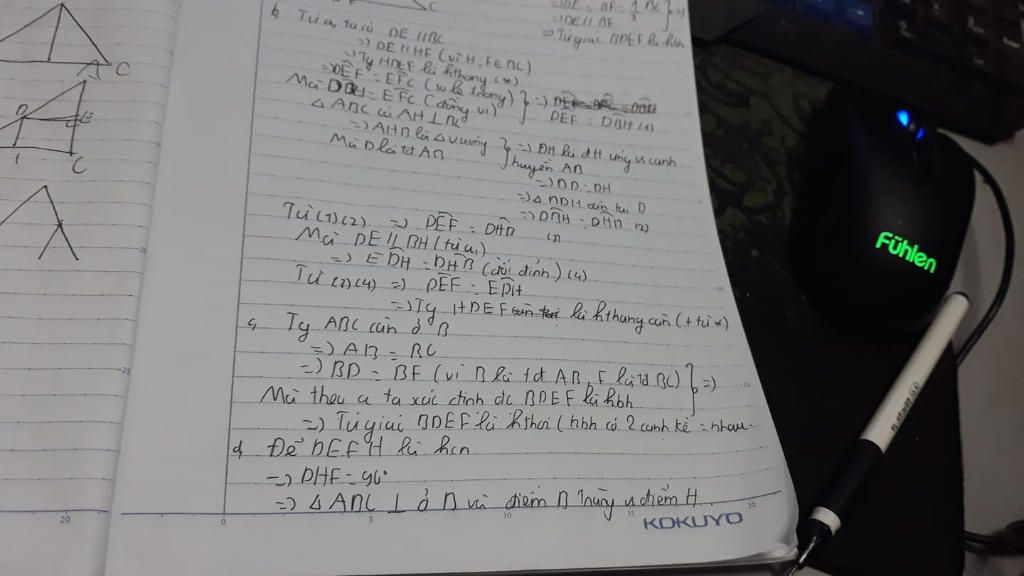 => DE = BF = 1/2 BC } =>
=> DE // BF
=> Tứ giác BDEF là hbh
b, Từ a, ta có DE // BC
=> DE // HF (vì H, F ∈ BC)
=> Tg HDEF là hthang (*)
=> DEF = EFC (so le trong)
Mà DBH = EFC (đồng vị) } => DEF = DBH (1)
Δ ABC có AH ⊥ BC
=> AHB là Δ vuông
Mà D là tđ AB } => DH là đtt ứng vs cạnh
huyền AB
=> BD = DH
=> Δ BDH cân tại D
=> DBH = DHB (2)
Từ (1) (2) => DEF = DHB (3)
Mà DE // BH (từ a)
=> EDH = DHB (đối đỉnh) (4)
Từ (3) (4) => DEF = EDH
=> Tg HDEF là hthang cân (+ từ *)
c, Tg ABC cân ở B
=> AB = BC
=> BD = BF (vì B là tđ AB, F là tđ BC) } =>
Mà theo a ta xác định dc BDEF là hbh
=> Tứ giác BDEF là hthoi (hbh có 2 cạnh kề = nhau
d, Để DEFH là hcn
=> DHF = 90°
=> Δ ABC ⊥ ở B và điểm B trùng vs điểm H
KOKUYO
0 5 10 15 20
20
C
D E
C
Fühlen